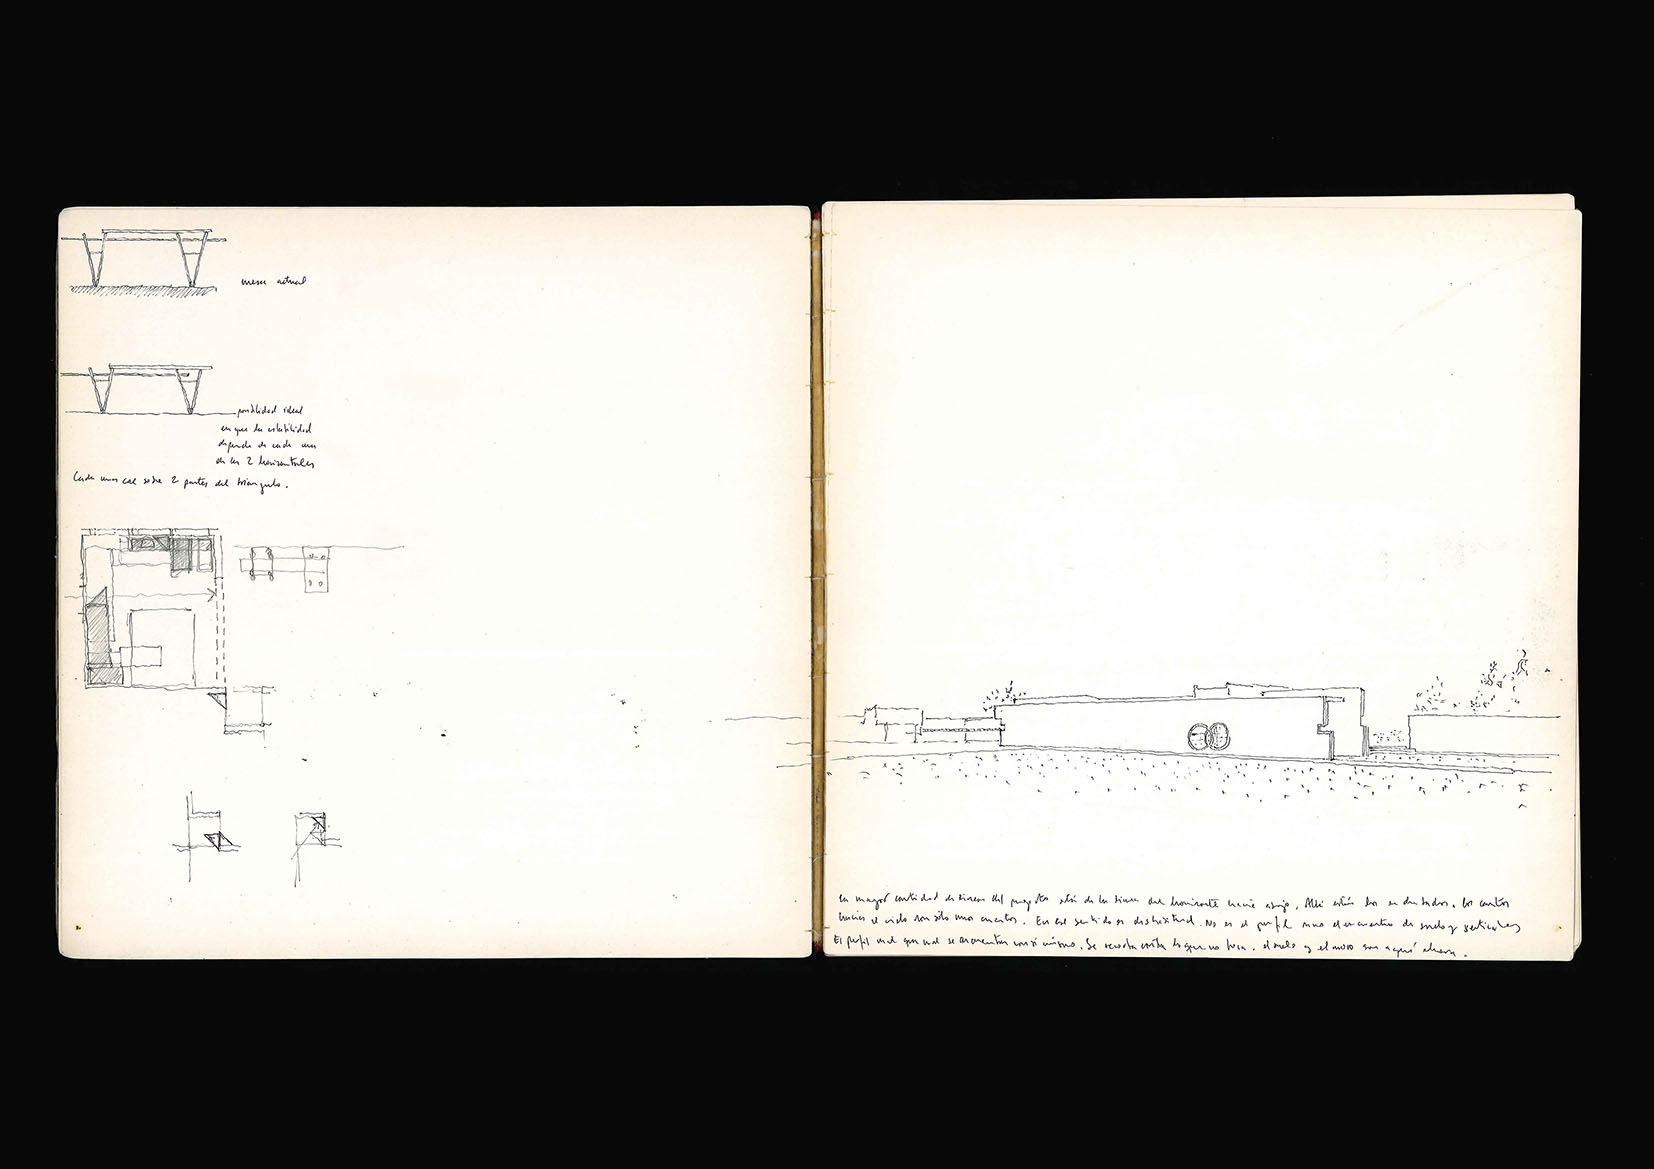 mesa actual
posibilidad ideal
en que la estabilidad
depende de cada una
de las 2 horizontales
Cada una cae sobre 2 partes del triángulo.
La mayor cantidad de líneas del proyecto está de la línea del horizonte hacia abajo. Allí están los
hacia el cielo son sólo unos cuantos. En ese sentido es No es el perfil sino el encuentro de suelo y verticales
El perfil se encuentra consigo mismo. Se recorta contra lo que no toca. el suelo y el muro son aquí